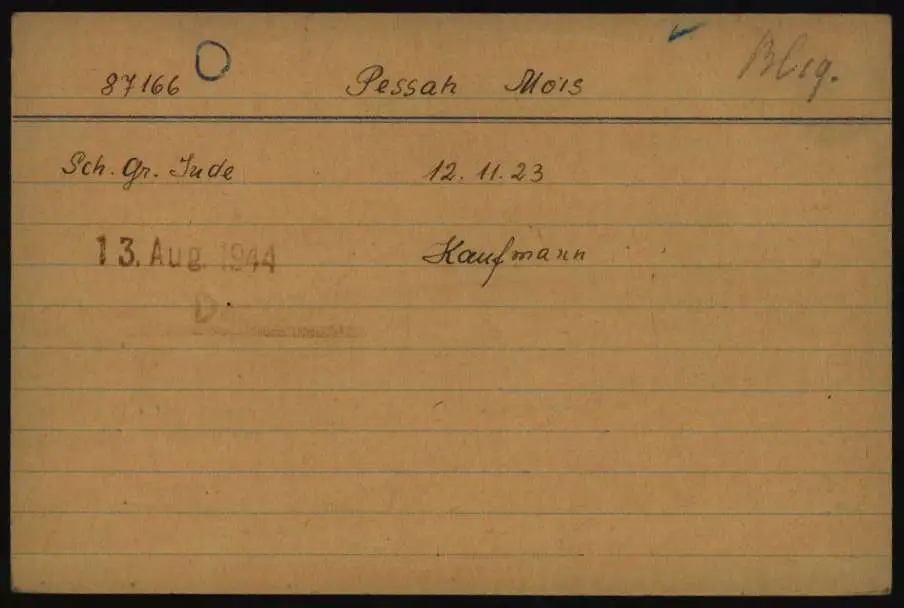 87166 Pessah Mois
Sch. Gr. Jude 12. 11. 23
13. Aug. 1944 Kaufmann